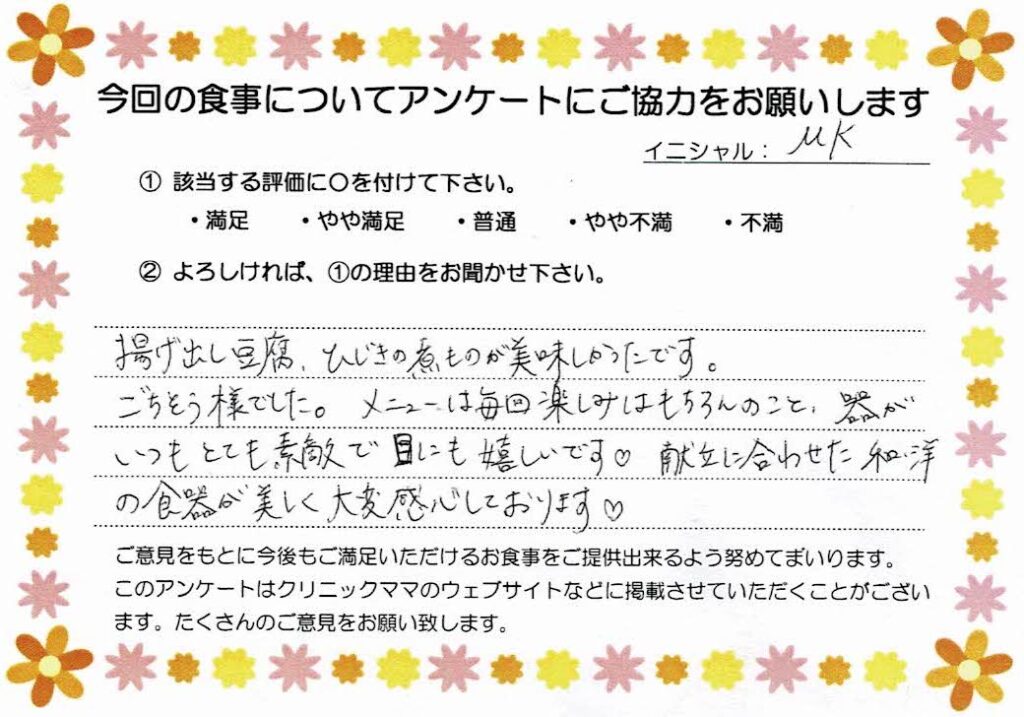 今回の食事についてアンケートにご協力をお願いします
イニシャル： MK
① 該当する評価に○を付けて下さい。
・満足　・やや満足　・普通　・やや不満　・不満
② よろしければ、①の理由をお聞かせ下さい。
揚げ出し豆腐、ひじきの煮ものが美味しかったです。
ごちそう様でした。 メニューは毎回楽しみはもちろんのこと、器が
いつもとても素敵で目にも嬉しいです♡ 献立に合わせた和・洋
の食器が美しく大変感心しております♡
ご意見をもとに今後もご満足いただけるお食事をご提供出来るよう努めてまいります。
このアンケートはクリニックママのウェブサイトなどに掲載させていただくことがござい
ます。たくさんのご意見をお願い致します。